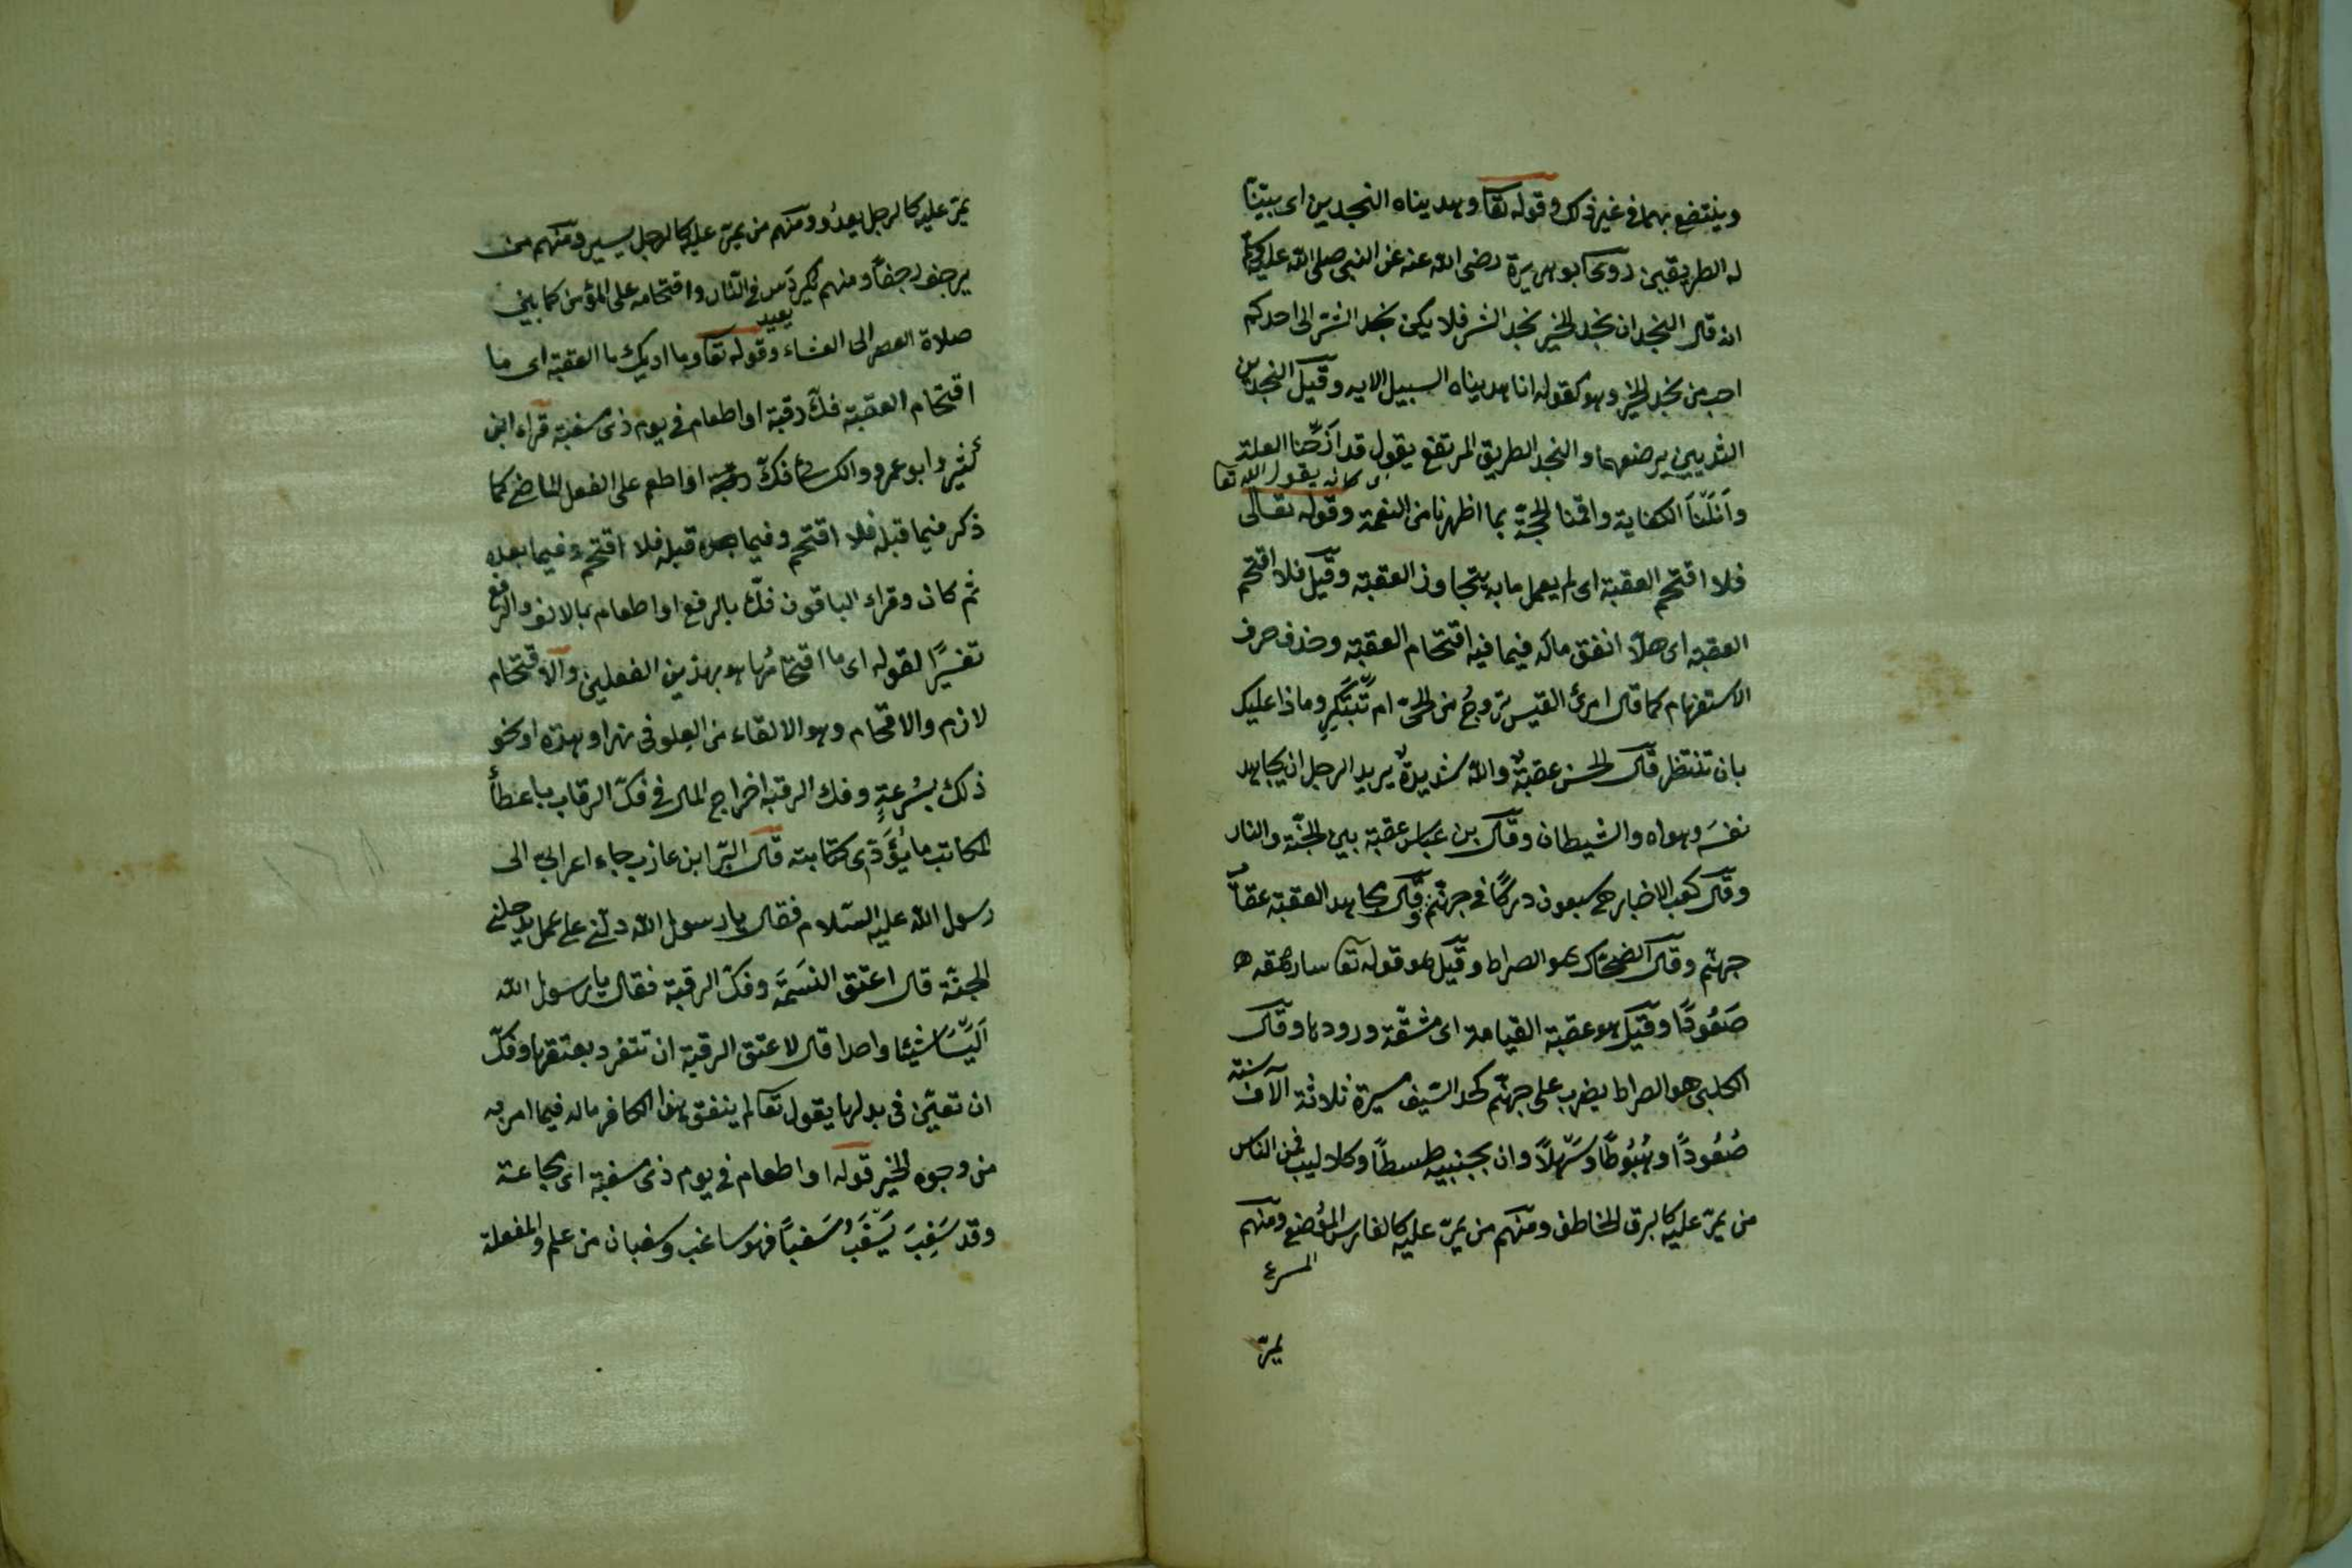 وينتفع بهما فى غير ذلك وقوله تعا وهديناه النجدين اى بيّنّا
له الطريقين روى ابو هريرة رضى الله عنه عن النبى صلى الله عليه
انه قال النجدان نجد الخير نجد الشر فلا يكن نجد الشر الى احدكم
احب من نجد الخير وهو كقوله انا هديناه السبيل الايه وقيل النجدين
الثديين يرضعهما والنجد الطريق المرتفع يقول قد ازحنا العلة
كانه يقول الله تعا
وانلنا الكفاية واقمنا الحجة بما اظهرنا من النعمة وقوله تعالى
فلا اقتحم العقبة اى لم يعمل ما به يتجاوز العقبة وقيل فلا اقتحم
العقبة اى هلّا انفق ماله فيما فيه اقتحام العقبة وحذف حرف
الاستفهام كما قال امرئ القيس تروحُ من الحىّ ام تبتكر وماذا عليك
بان تنتظر قال الحسن عقبةٌ والله شديدةٌ يريد الرجل ان يجاهد
نفسَه وهواه والشيطان وقال بن عباس عقبة بين الجنّة والنار
وقال كعب الاخبار هى سبعون دركًا فى جهنّم وقال مجاهد العقبة عقاب
جهنّم وقال الضحّاك هو الصراط وقيل هو قوله تعا سارهقه
صَعُودًا وقيل هو عقبة القيامة اى مشقّة ورودها وقال
الكلبى هو الصراط يضرب على جهنّم كحد السّيف مسيرة ثلاثة الآف سنة
صُعُودًا وهُبُوطًا وسَهلاً وان بجنبيه كلاليب فمن الناس
من يمرّ عليه كالبرق الخاطف ومنهم من يمرّ عليه كالفارس المُوضع ومنهم
المسرع
يمرّ
يمرّ عليه كالرجل يعدُو ومنهم من يمرّ عليه كالرجل يسير ومنهم من
يزحف زحفًا ومنهم مكردَس فى النّار واقتحامه على المؤمن كما بين
صلاة العصر الى العشاء وقوله تعا وما ادريك ما العقبة اى ما
اقتحام العقبة فكّ رقبة او اطعام فى يوم ذى مسغبة قراء ابن
كثير وابو عمرو والكسائى فكّ رقبة او اطعم على الفعل الماضى كما
ذكر فيما قبله فلا اقتحم وفيما قبله فلا اقتحم وفيما بعده
ثم كان وقراء الباقون فكّ بالرفع او اطعام بالالف والرفع
تفسيرًا لقوله اى ما اقتحامُها هو بهذين الفعلين والاقتحام
لازم والاقحام وهو الالقاء من العلو فى نهر او هوة او نحو
ذلك بسُرعةٍ وفك الرقبة اخراج المال فى فكّ الرقاب باعطأ
المكاتب ما يُؤَدّى كتابته قال البرّا ابن عازب جاء اعرابىّ الى
رسول الله عليه السّلام فقال يا رسول الله دلّنى على عمل يدخلنى
الجنّة قال اعتق النسَمَة وفكّ الرقبة فقال يا رسول الله
اَلَيسَا شيئا واحدا قال لا عتق الرقبة ان تتفرد بعتقها وفكّ
ان تعيّن فى بدلها يقول تعا لم ينفق هذا الكافر ماله فيما امر به
من وجوه الخير قوله او اطعام فى يوم ذى مسغبة اى مجاعة
وقد سَغِبَ يَسْغَبُ سَغبًا فهو ساغب وسغبان من علم والمفعلة